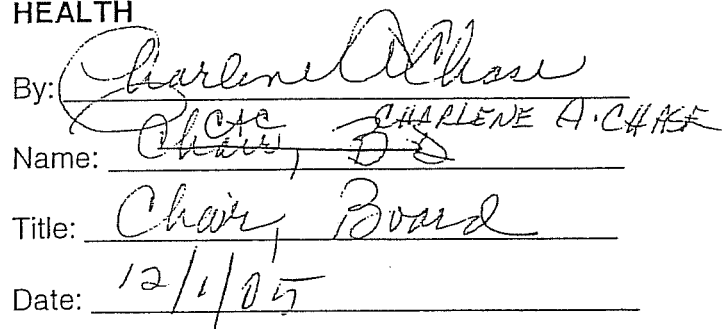 HEALTH
By: Charlene A Chase
CAC CHARLENE A. CHASE
Name: Chair, Bd
Title: Chair, Board
Date: 12/1/05